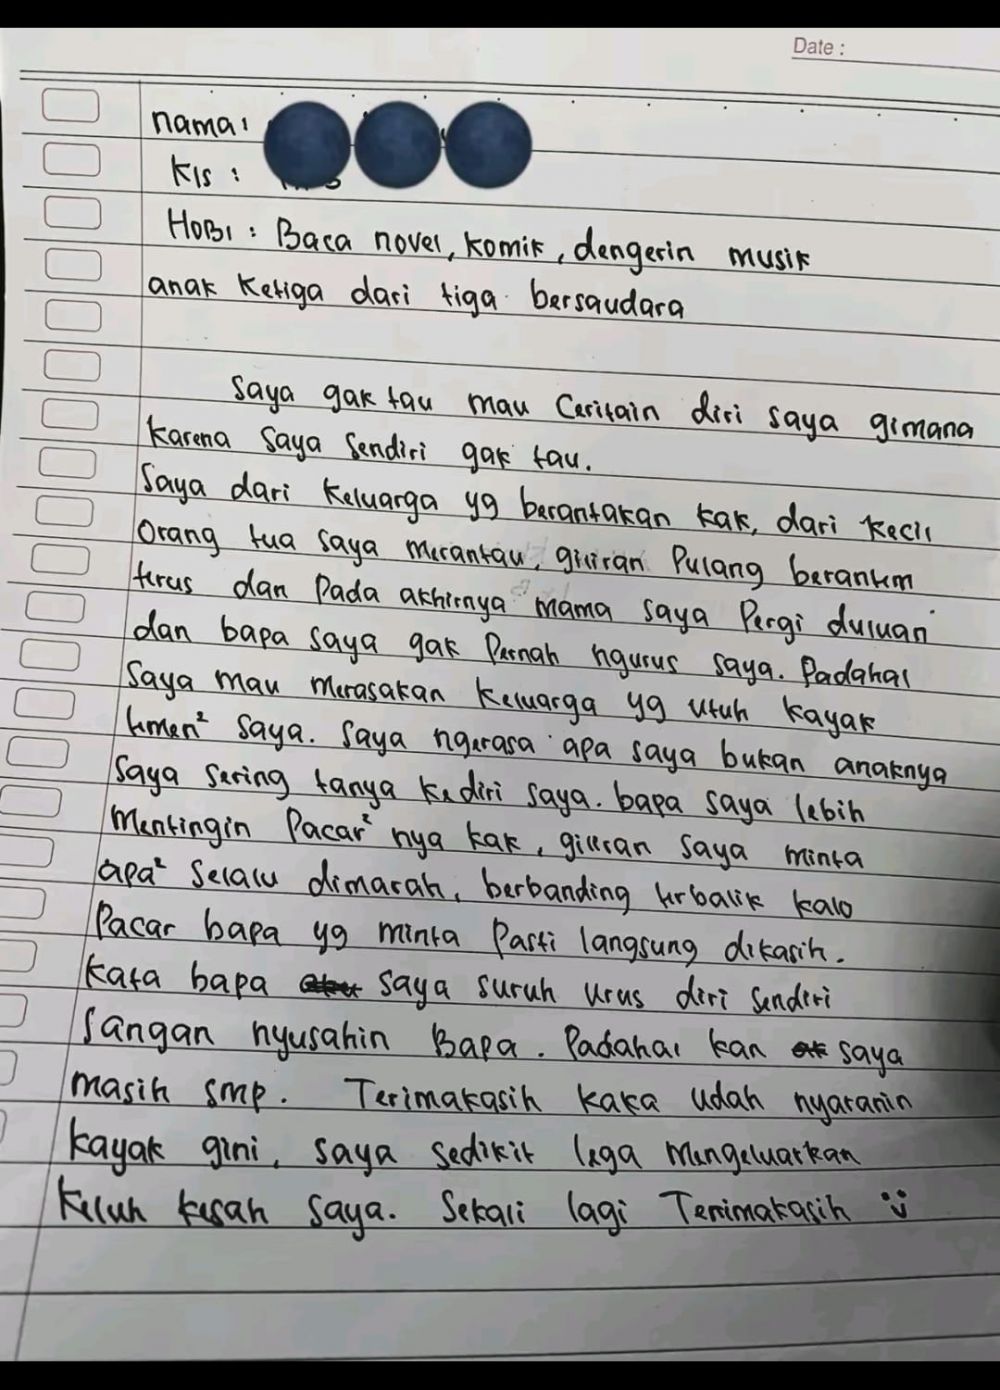 Date :
nama :
Kls :
HOBI : Baca novel, komik, dengerin musik
anak Ketiga dari tiga bersaudara
Saya gak tau mau Ceritain diri saya gimana
Karena Saya Sendiri gak tau.
Saya dari Keluarga yg berantakan kak, dari kecil
Orang tua Saya merantau, giliran Pulang berantem
terus dan Pada akhirnya mama saya Pergi duluan
dan bapa saya gak Pernah ngurus saya. Padahal
Saya mau merasakan Keluarga yg utuh kayak
temen² saya. Saya ngerasa apa saya bukan anaknya
Saya sering tanya kediri saya. bapa saya lebih
Mentingin Pacar² nya kak, giliran saya minta
apa² Selalu dimarah, berbanding terbalik kalo
Pacar bapa yg minta Pasti langsung dikasih.
Kata bapa saya suruh urus diri sendiri
Jangan nyusahin Bapa. Padahal kan saya
masih smp. Terimakasih kaka udah nyaranin
kayak gini, saya sedikit lega mengeluarkan
Keluh kesah saya. Sekali lagi Terimakasih